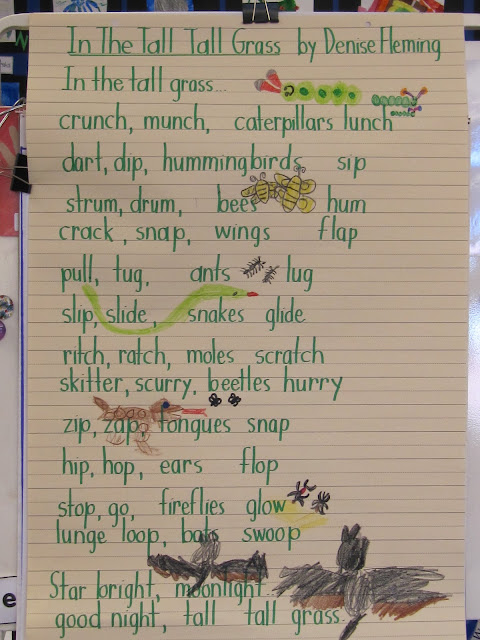 In The Tall Tall Grass by Denise Fleming
In the tall grass...
crunch, munch, caterpillars lunch
dart, dip, hummingbirds sip
strum, drum, bees hum
crack, snap, wings flap
pull, tug, ants lug
slip, slide, snakes glide
ritch, ratch, moles scratch
skitter, scurry, beetles hurry
zip, zap, tongues snap
hip, hop, ears flop
stop, go, fireflies glow
lunge loop, bats swoop
Star bright, moonlight...
good night, tall tall grass.
e